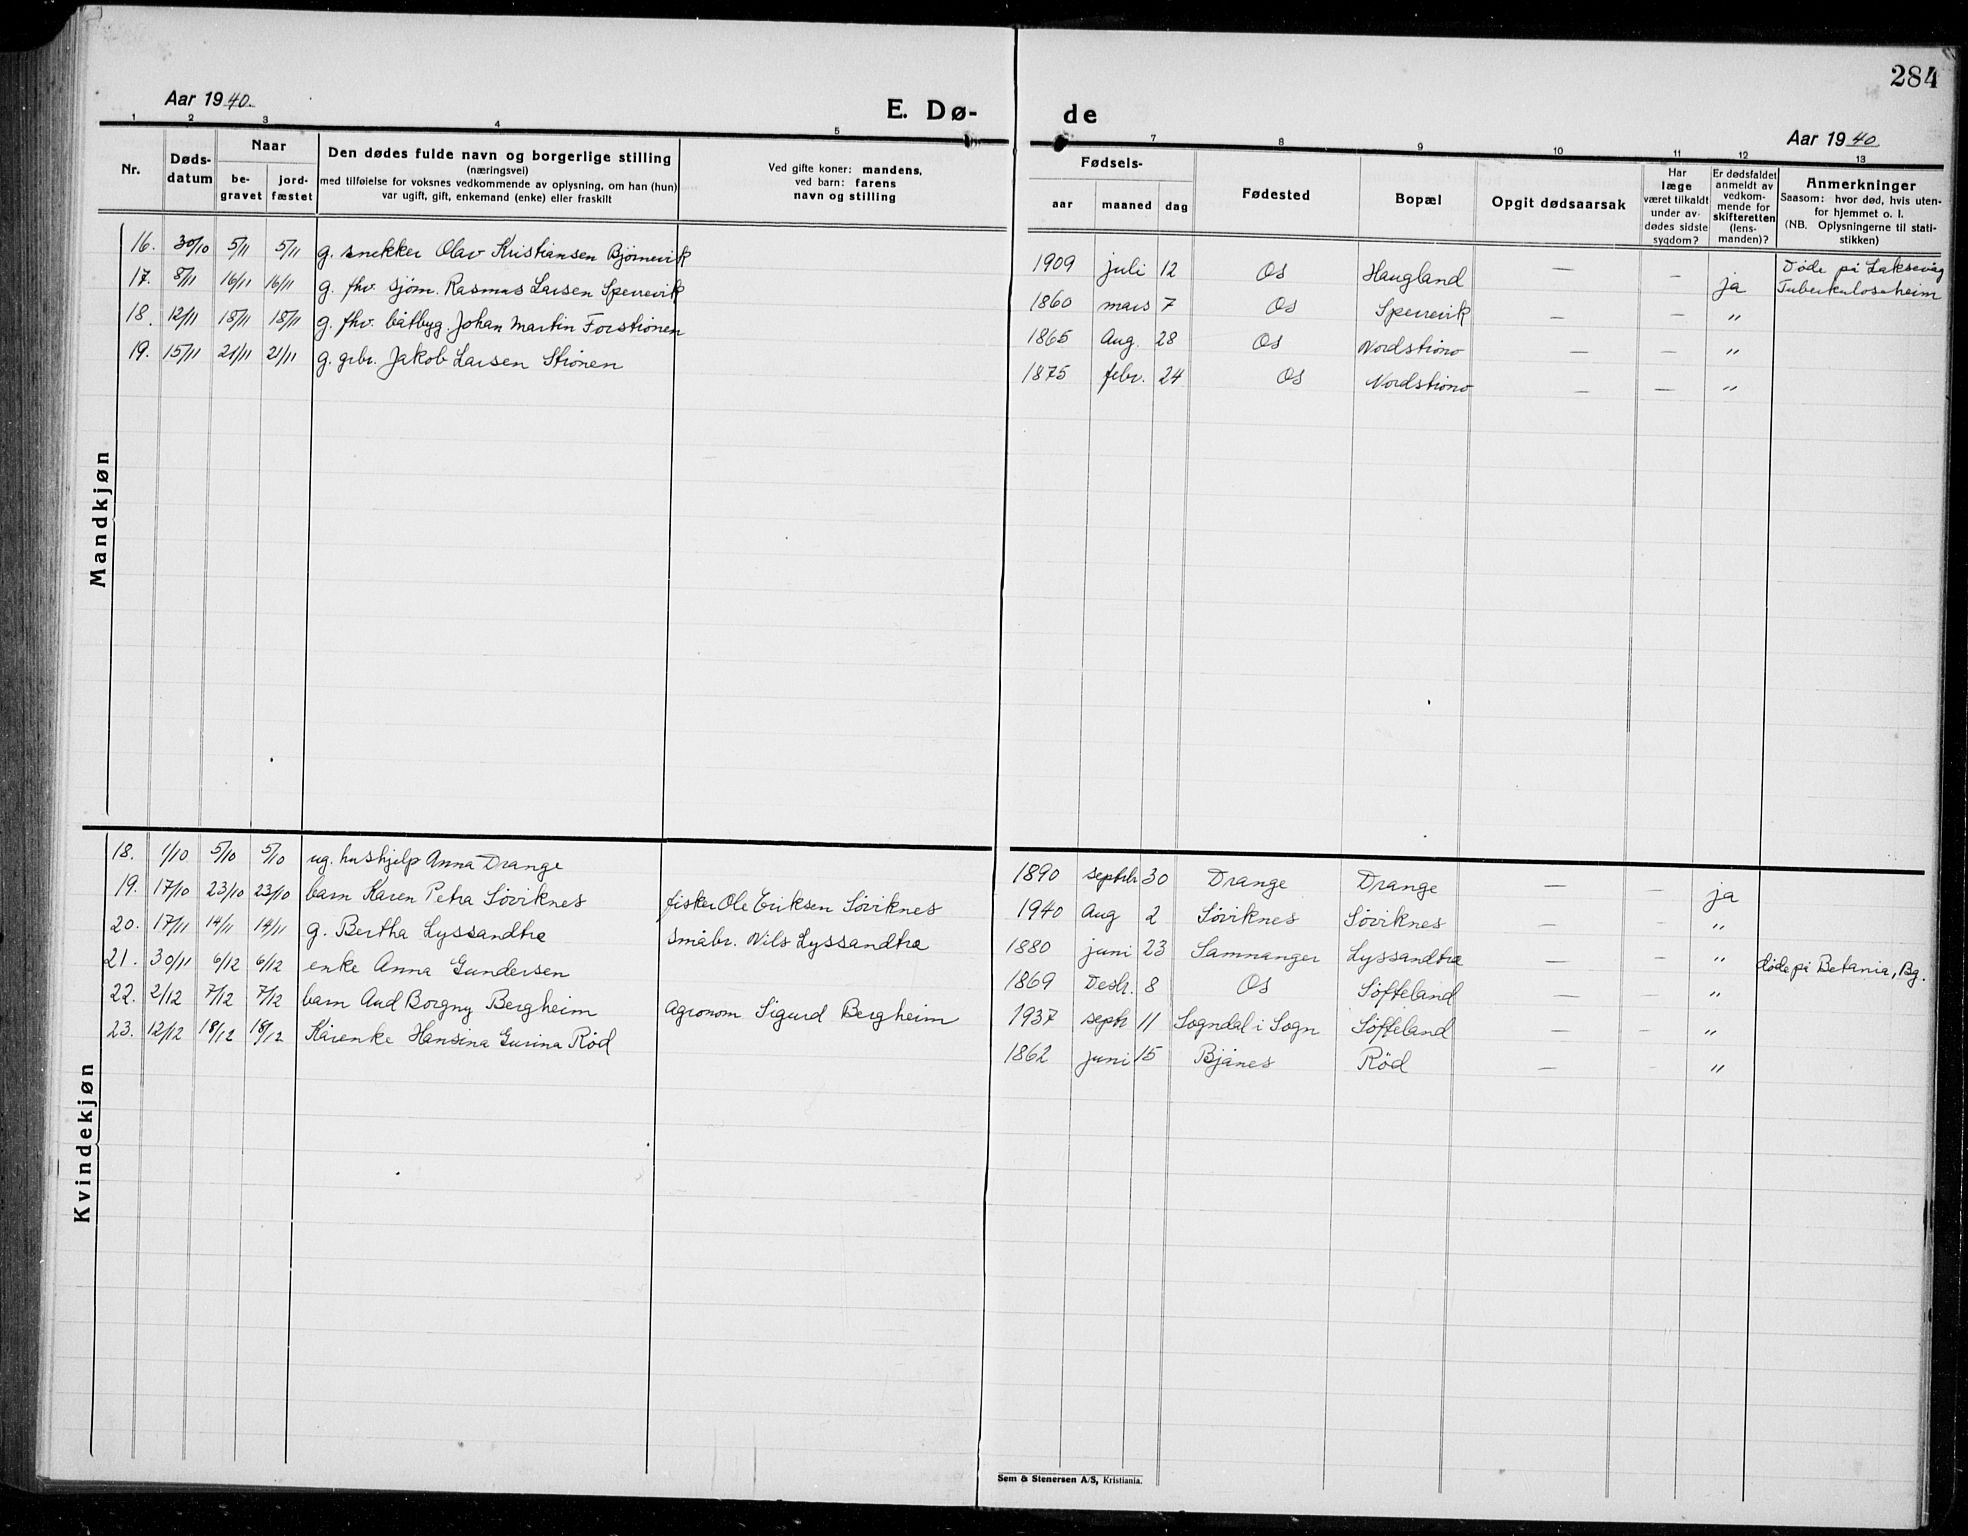 284
Aar 1940.
E. Dø-
de
Aar 1940
1 2 3 4 5 7 8 9 10 11 12 13
Nr.
Døds-
datum
Naar
be-
gravet
jord-
fæstet
Den dødes fulde navn og borgerlige stilling
(næringsvei)
med tilføielse for voksnes vedkommende av oplysning, om han (hun)
var ugift, gift, enkemand (enke) eller fraskilt
Ved gifte koner: mandens,
ved barn: farens
navn og stilling
Fødsels-
aar
maaned
dag
Fødested
Bopæl
Opgit dødsaarsak
Har
læge
været tilkaldt
under av-
dødes sidste
sygdom?
Er dødsfaldet
anmeldt av
vedkom-
mende for
skifteretten
(lens-
manden)?
Anmerkninger
Saasom: hvor død, hvis uten-
for hjemmet o. l.
(NB. Oplysningerne til stati-
stikken)
Mandkjøn
16. 30/10 5/11 5/11 g. snekker Olav Kristiansen Bjørnevik 1909 juli 12 Os Haugland — — ja Døde på Laksevåg
Tuberkuloseheim
17. 8/11 16/11 16/11 g. fhv. sjøm. Rasmus Larsen Sperrevik 1860 mars 7 Os Sperrevik — — "
18. 12/11 18/11 18/11 g. fhv. båtbyg. Johan Martin Forstrønen 1865 Aug. 28 Os Nordstrøno — — "
19. 15/11 21/11 21/11 g. grbr. Jakob Larsen Strønen 1875 febr. 24 Os Nordstrøno — — "
Kvindekjøn
18. 1/10 5/10 5/10 ug. hushjelp Anna Drange 1890 septbr 30 Drange Drange — — ja
19. 17/10 23/10 23/10 barn Karen Petra Søviknes fisker Ole Eriksen Søviknes 1940 Aug 2 Søviknes Søviknes — - "
20. 17/11 14/11 14/11 g. Bertha Lyssandtræ småbr. Nils Lyssandtræ 1880 juni 23 Samnanger Lyssandtræ — - " døde på Betania, Bg.
21. 30/11 6/12 6/12 enke Anna Gundersen 1869 Desbr. 8 Os Søfteland — — "
22. 2/12 7/12 7/12 barn Aud Borgny Bergheim agronom Sigurd Bergheim 1937 septr 11 Sogndal i Sogn Søfteland — — "
23. 12/12 18/12 18/12 Kårenke Hansina Gurina Rød 1862 juni 15 Bjånes Rød — - "
Sem & Stenersen A/S, Kristiania.